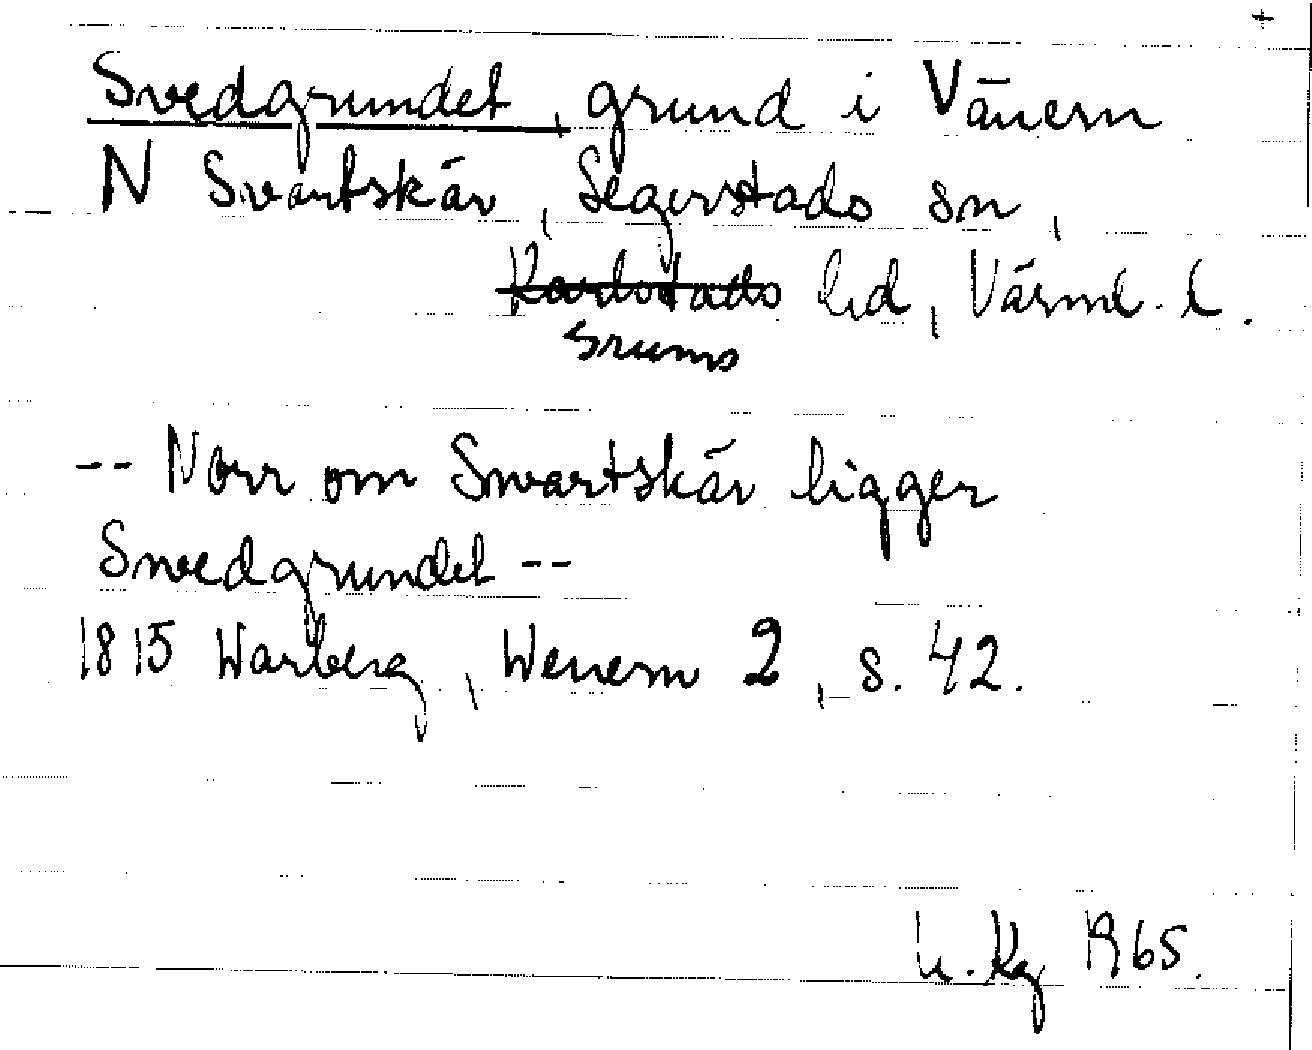 +
Svedgrundet, grund i Vänern
N Svartskär, Segerstads sn,
Karlstads hd, Värml. l.
Grums
-- Norr om Swartskär ligger
Swedgrundet --
1815 Warberg, Wenern 2, s. 42.
1965.